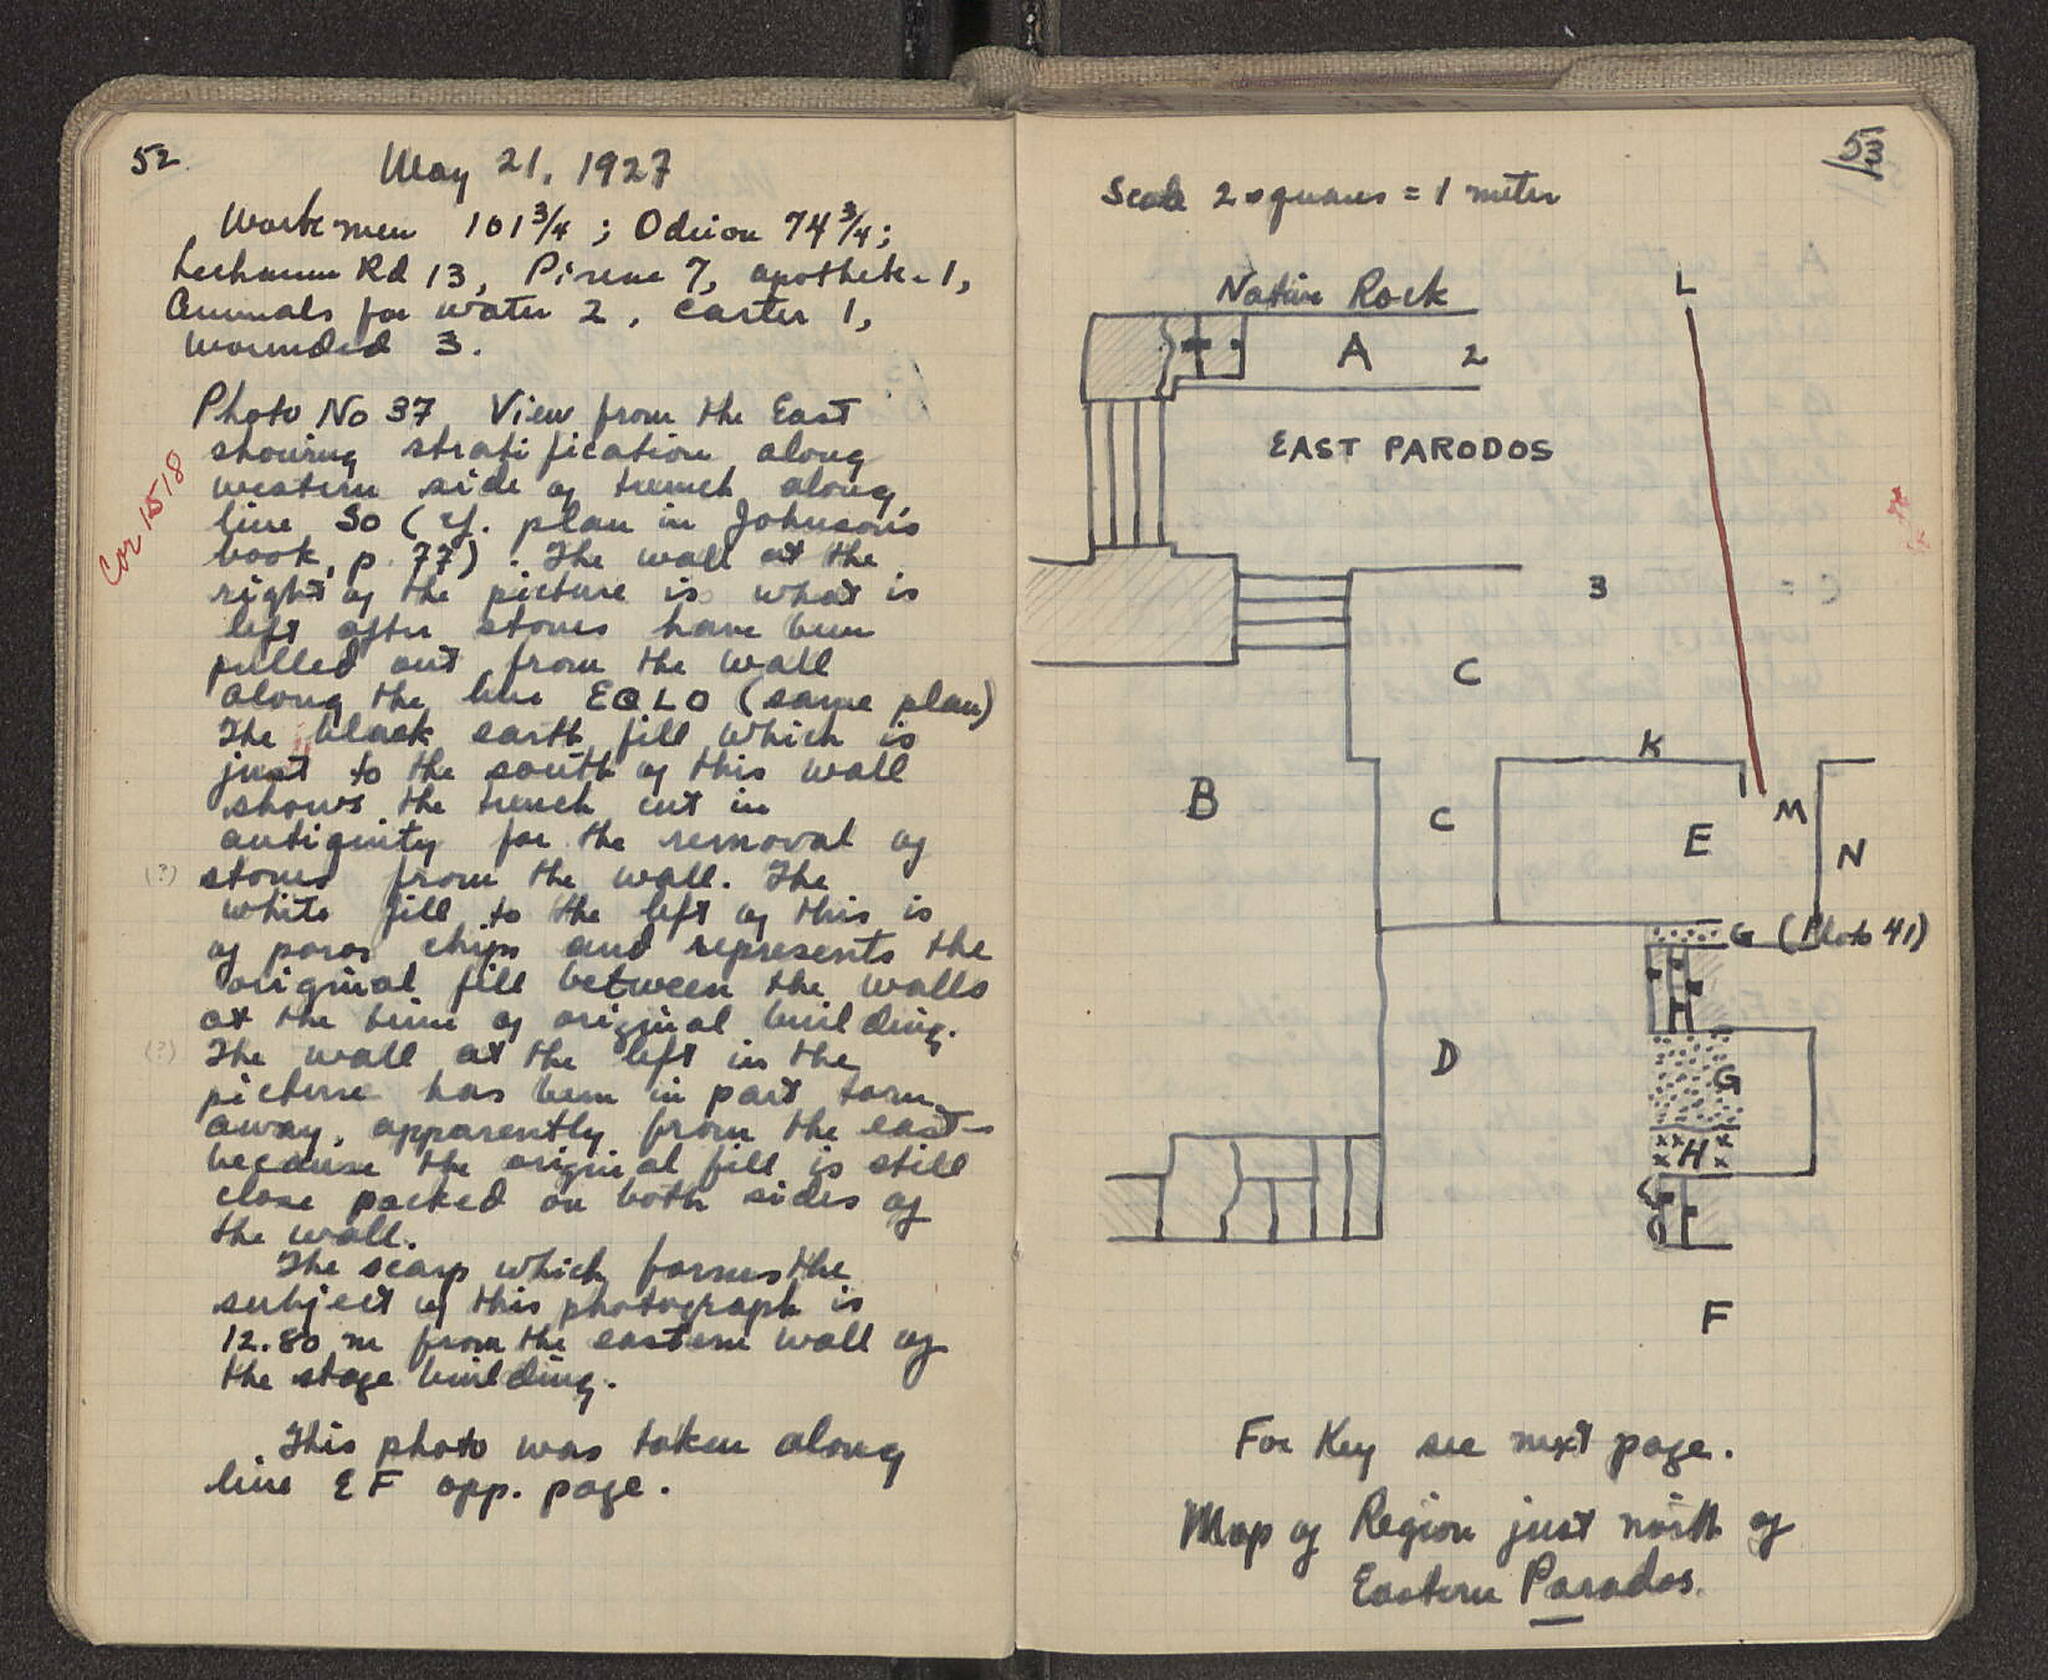 52
May 21, 1927
Workmen 101 3/4 ; Odeion 74 3/4 ;
Lechaeum Rd 13, Pirene 7, apothek. 1,
Animals for water 2, carter 1,
wounded 3.
Photo No 37 View from the East
showing stratification along
western side of trench along
line SO (cf. plan in Johnson's
book, p. 77). The wall at the
right of the picture is what is
left after stones have been
pulled out from the wall
along the line EQLO (same plan)
The black earth fill which is
just to the south of this wall
shows the trench cut in
antiquity for the removal of
(?) stones from the wall. The
white fill to the left of this is
of poros chips and represents the
original fill between the walls
at the time of original building.
(?) The wall at the left in the
picture has been in part torn
away, apparently from the east-
because the original fill is still
close packed on both sides of
the wall.
The scarp which forms the
subject of this photograph is
12.80 m from the eastern wall of
the stage building.
This photo was taken along
line EF opp. page.
Cor 1518
53
Scale 2 squares = 1 meter
Native Rock
L
A 2
EAST PARODOS
3
C
K
B
C
E
M
N
G (Photo 41)
D
G
H
F
For Key see next page.
Map of Region just north of
Eastern Parados.